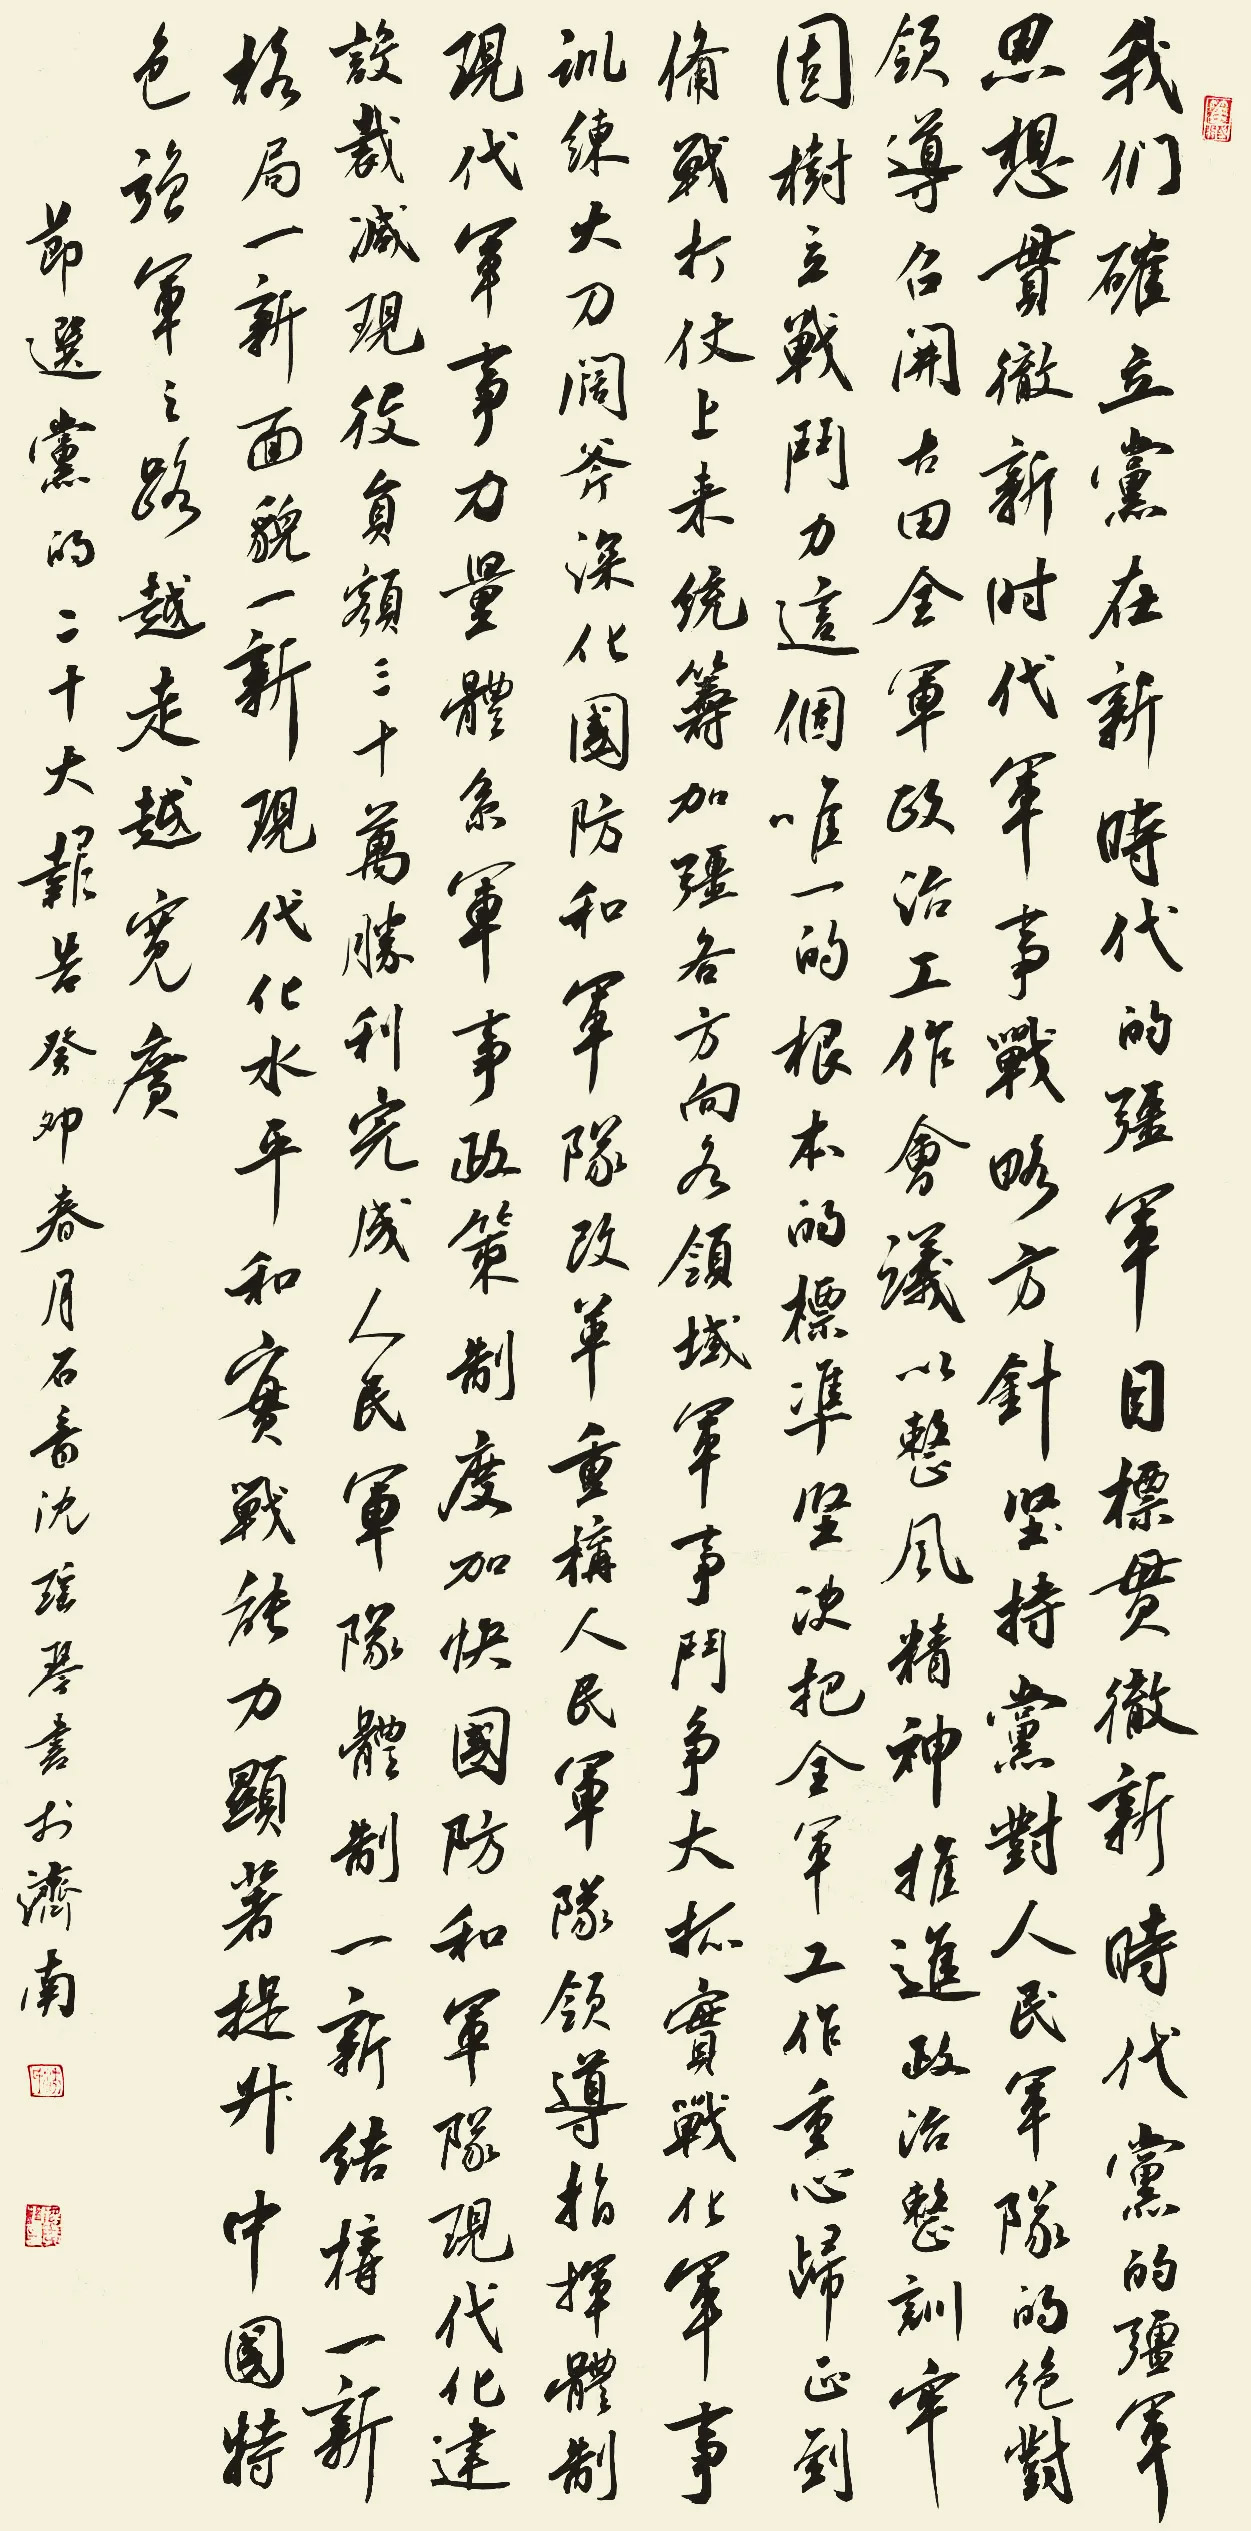 我们確立黨在新時代的彊軍目標貫徹新時代黨的彊軍
思想貫徹新时代軍事戰略方針坚持黨對人民軍隊的绝對
領導召開古田全軍政治工作會議以整风精神推進政治整訓牢
固樹立戰鬥力這個唯一的根本的標準坚决把全軍工作重心歸正到
備戰打仗上来統籌加彊各方向各領域軍事鬥争大抓實戰化軍事
訓練大刀阔斧深化國防和軍隊改革重構人民軍隊領導指揮體制
現代軍事力量體系軍事政策制度加快國防和軍隊現代化建
設裁減現役員額三十萬勝利完成人民軍隊體制一新結構一新
格局一新面貌一新現代化水平和實戰能力顯著提升中國特
色强軍之路越走越宽廣
節選黨的二十大報告癸卯春月石音沈瑶琴書於濟南